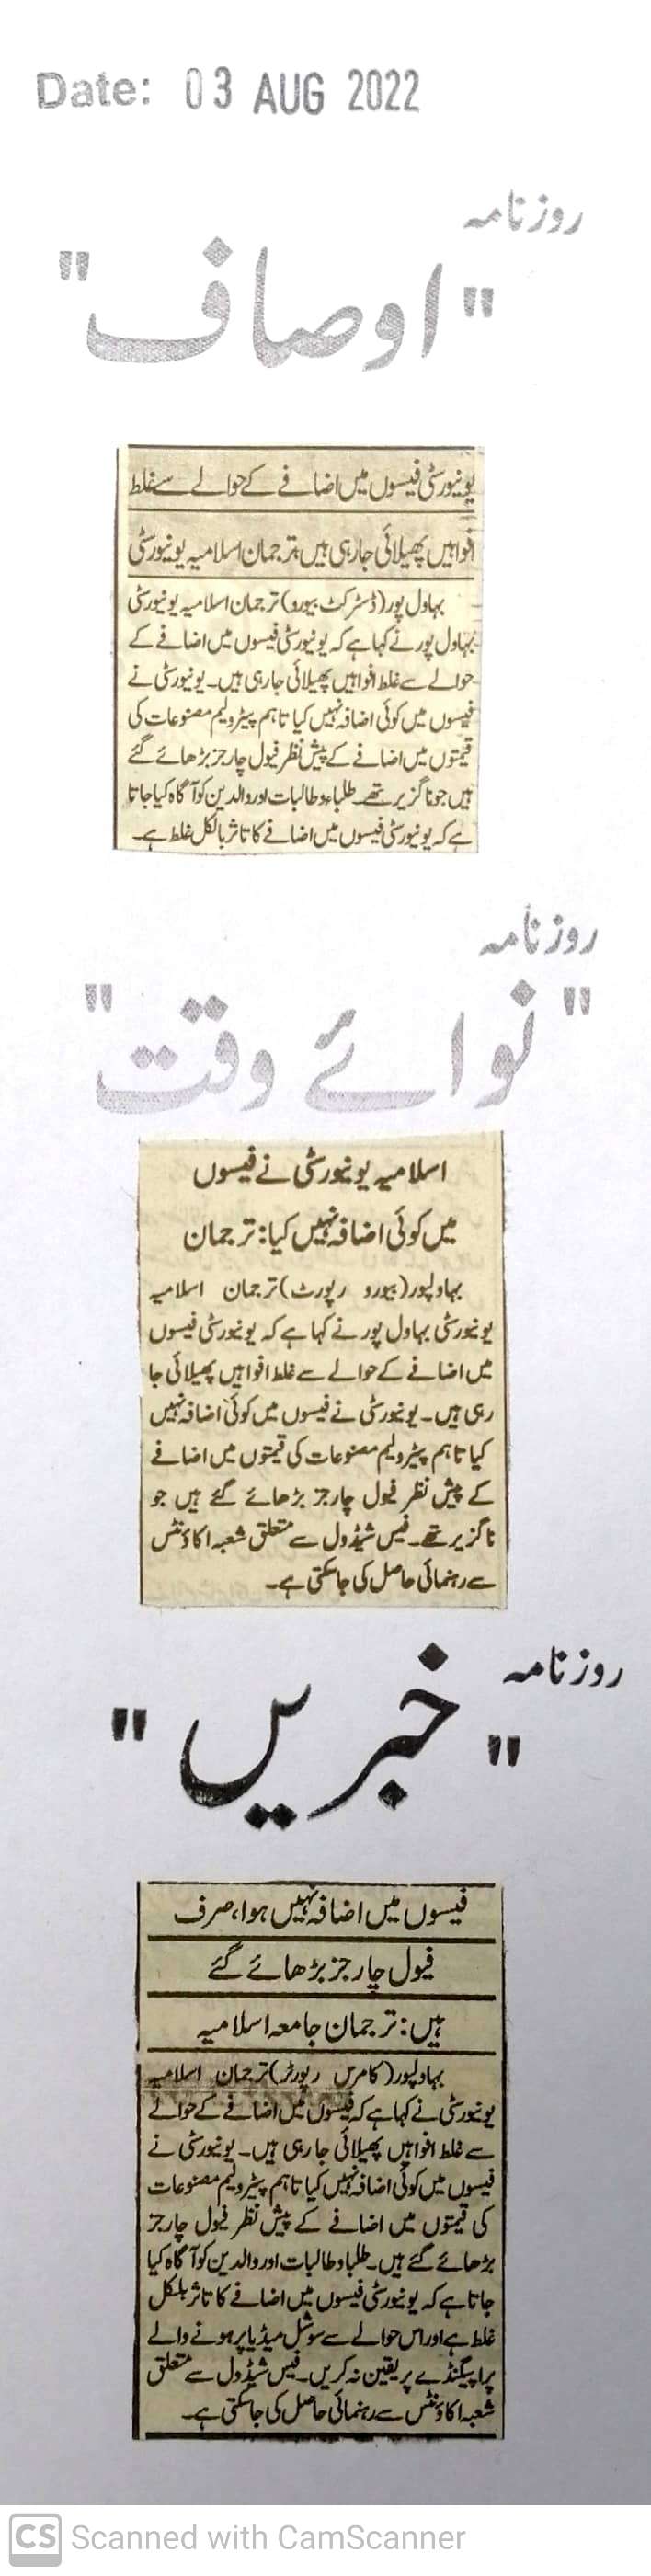 Date: 03 AUG 2022
روزنامہ
"اوصاف"
یونیورسٹی فیسوں میں اضافے کے حوالے سے غلط
افواہیں پھیلائی جارہی ہیں، ترجمان اسلامیہ یونیورسٹی
بہاول پور (ڈسٹرکٹ بیورو) ترجمان اسلامیہ یونیورسٹی
بہاول پور نے کہا ہے کہ یونیورسٹی فیسوں میں اضافے کے
حوالے سے غلط افواہیں پھیلائی جارہی ہیں۔ یونیورسٹی نے
فیسوں میں کوئی اضافہ نہیں کیا تاہم پیٹرولیم مصنوعات کی
قیمتوں میں اضافے کے پیش نظر فیول چارجز بڑھائے گئے
ہیں جو ناگزیر تھے۔ طلباء و طالبات اور والدین کو آگاہ کیا جاتا
ہے کہ یونیورسٹی فیسوں میں اضافے کا تاثر بالکل غلط ہے۔
روزنامہ
"نوائے وقت"
اسلامیہ یونیورسٹی نے فیسوں
میں کوئی اضافہ نہیں کیا: ترجمان
بہاولپور (بیورو رپورٹ) ترجمان اسلامیہ
یونیورسٹی بہاول پور نے کہا ہے کہ یونیورسٹی فیسوں
میں اضافے کے حوالے سے غلط افواہیں پھیلائی جا
رہی ہیں۔ یونیورسٹی نے فیسوں میں کوئی اضافہ نہیں
کیا تاہم پیٹرولیم مصنوعات کی قیمتوں میں اضافے
کے پیش نظر فیول چارجز بڑھائے گئے ہیں جو
ناگزیر تھے۔ فیس شیڈول سے متعلق شعبہ اکاؤنٹس
سے رہنمائی حاصل کی جاسکتی ہے۔
روزنامہ
"خبریں"
فیسوں میں اضافہ نہیں ہوا، صرف
فیول چارجز بڑھائے گئے
ہیں: ترجمان جامعہ اسلامیہ
بہاولپور (کامرس رپورٹر) ترجمان اسلامیہ
یونیورسٹی نے کہا ہے کہ فیسوں میں اضافے کے حوالے
سے غلط افواہیں پھیلائی جا رہی ہیں۔ یونیورسٹی نے
فیسوں میں کوئی اضافہ نہیں کیا تاہم پیٹرولیم مصنوعات
کی قیمتوں میں اضافے کے پیش نظر فیول چارجز
بڑھائے گئے ہیں۔ طلبا و طالبات اور والدین کو آگاہ کیا
جاتا ہے کہ یونیورسٹی فیسوں میں اضافے کا تاثر بلکل
غلط ہے اور اس حوالے سے سوشل میڈیا پر ہونے والے
پراپیگنڈے پر یقین نہ کریں۔ فیس شیڈول سے متعلق
شعبہ اکاؤنٹس سے رہنمائی حاصل کی جاسکتی ہے۔
CS Scanned with CamScanner